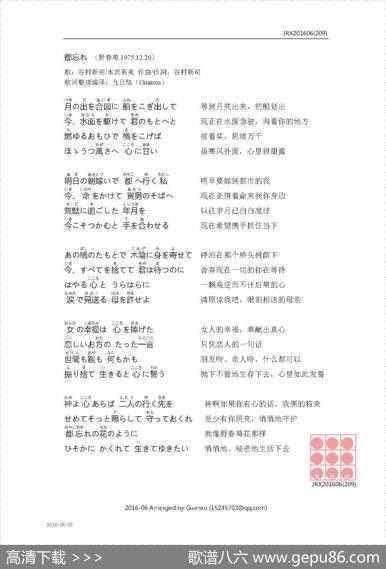 JRX201606(209)
都忘れ (野春菊 1975.12.20)
歌:谷村新司/水沢有美 作曲/作詞:谷村新司
歌词整理编译:九日旭(Guanxu)
月の出を合図に 船をこぎ出して 等到月亮出来,把船划出
今、水面を駆けて 君のもとへと 现正在水面急驶,向着你的地方
燃ゆるおもひで 櫓をこげば 摇着桨,思绪万千
ほゝうつ風さへ 心に甘い 虽寒风扑面,心里很甜蜜
明日の朝嫁いで 都へ行く私 明早要嫁到都市的我
今、命をかけて 貴男のそばへ 现在正拼着命来到你身边
無駄に過ごした 年月を 以往岁月已白白度过
今こそつかむと 手を合わせる 现在希望携手抓住当下
あの橋のたもとで 木陰に身を寄せて 停泊在那个桥头树荫下
今、すべてを捨てて 君は待つのに 舍弃现在一切的你在等待
はやる心と うらはらに 一颗焦迫而不计后果的心
涙で見送る 母を許せよ 请原谅我吧,眼泪相送的母亲
女の幸福は 心を捧げた 女人的幸福,奉献出真心
恋しいお方の たった一言 只凭恋人的一句话
世間も親も 何もかも 朋友呀,亲人呀,什么都可以
振り捨て 生きると心に誓う 抛下不管地生存下去,心里如此发誓
神よ心あらば 二人の行く先を 神啊如果你有心的话,我俩的将来
せめてそっと照らして 守っておくれ 至少有你照亮,悄悄地守护
都忘れの花のように 就像野春菊花那样
ひそかに かくれて 生きてゆきたい 悄悄地、秘密地生活下去
JRX201606(209)
2016-06 Arranged by Guanxu (15245703@qq.com)
2016-06-02
高清下载 >>> 歌谱八六 www.gepu86.com